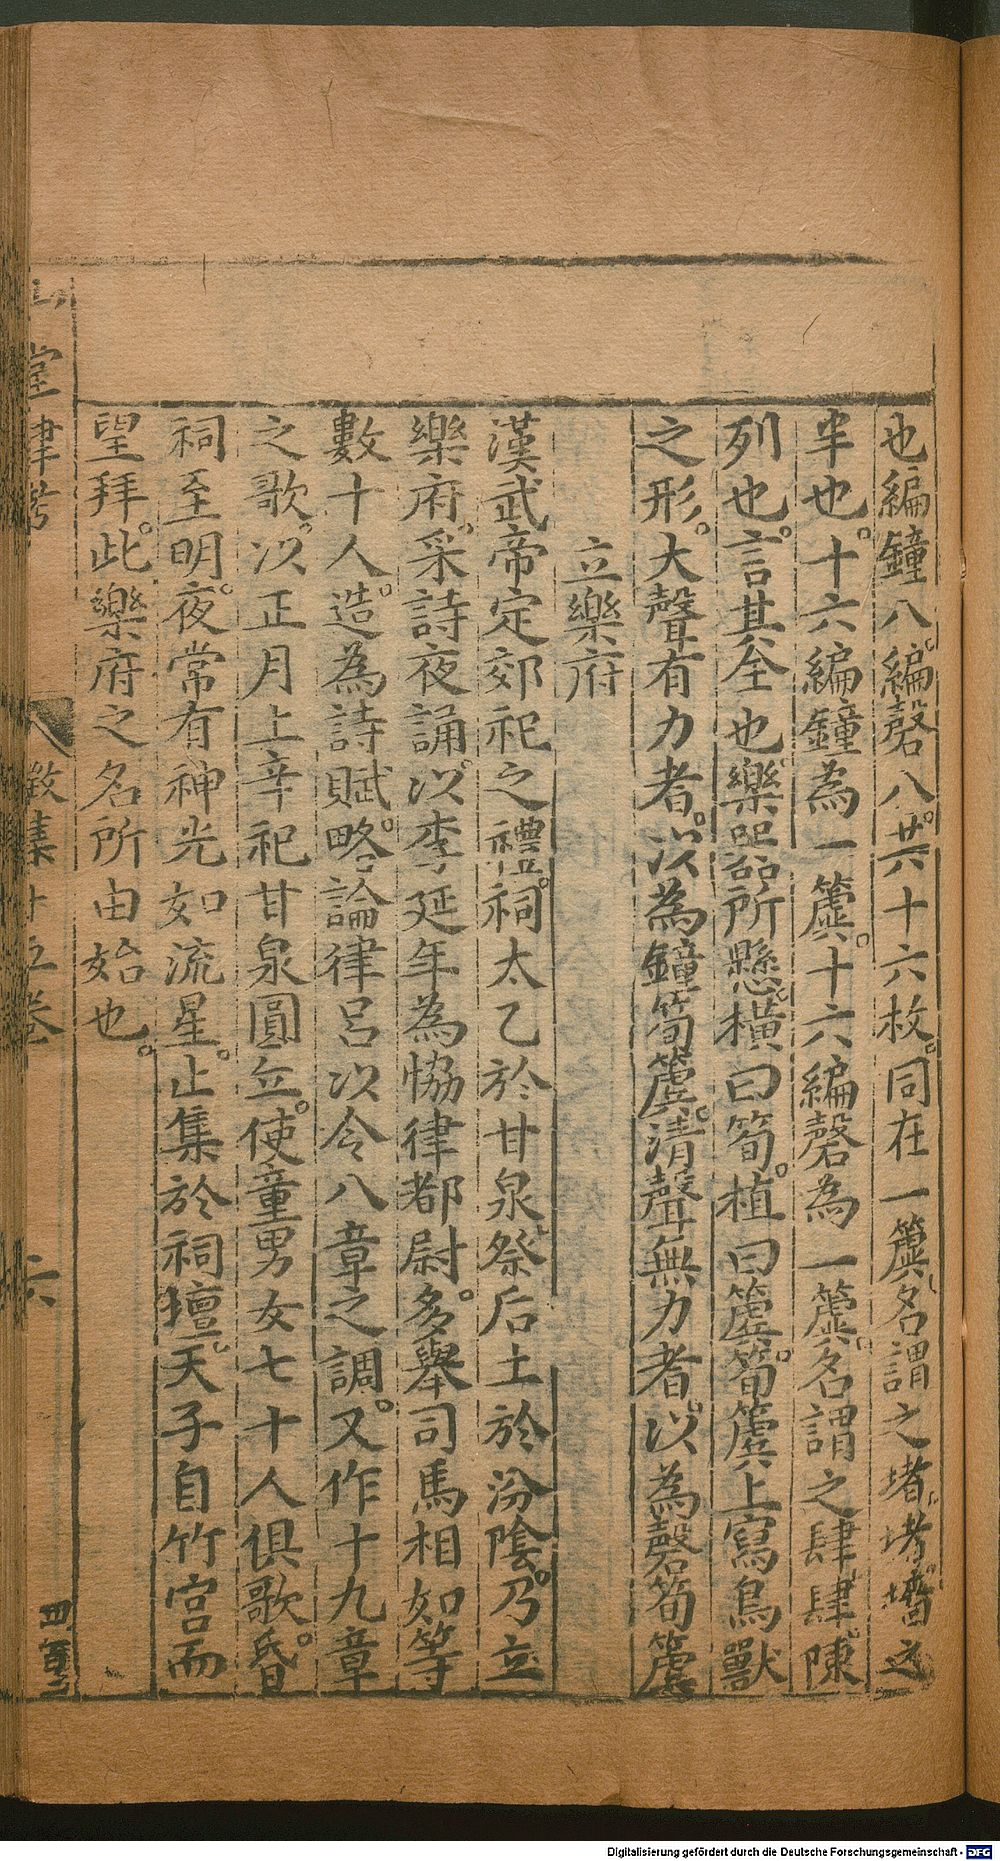 也編鐘八編磬八共十六枚同在一簴名謂之堵堵墻之
半也。十六編鐘為一簴。十六編磬為一簴。名謂之肆肆陳
列也。言其全也樂器所懸橫曰筍。植曰簴。筍簴上寫鳥獸
之形。大聲有力者。以為鐘筍簴。清聲無力者。以為磬筍簴
立樂府
漢武帝定郊祀之禮。祠太乙於甘泉祭后土於汾陰。乃立
樂府。采詩夜誦以李延年為恊律都尉。多舉司馬相如等
數十人。造為詩賦。略論律呂以令八章之調。又作十九章
之歌。以正月上辛祀甘泉圓丘。使童男女七十人俱歌。昏
祠至明。夜常有神光如流星。止集於祠壇天子自竹宮而
望拜。此樂府之名所由始也。
堂肆考 徵集十五卷 六
Digitalisierung gefördert durch die Deutsche Forschungsgemeinschaft - DFG